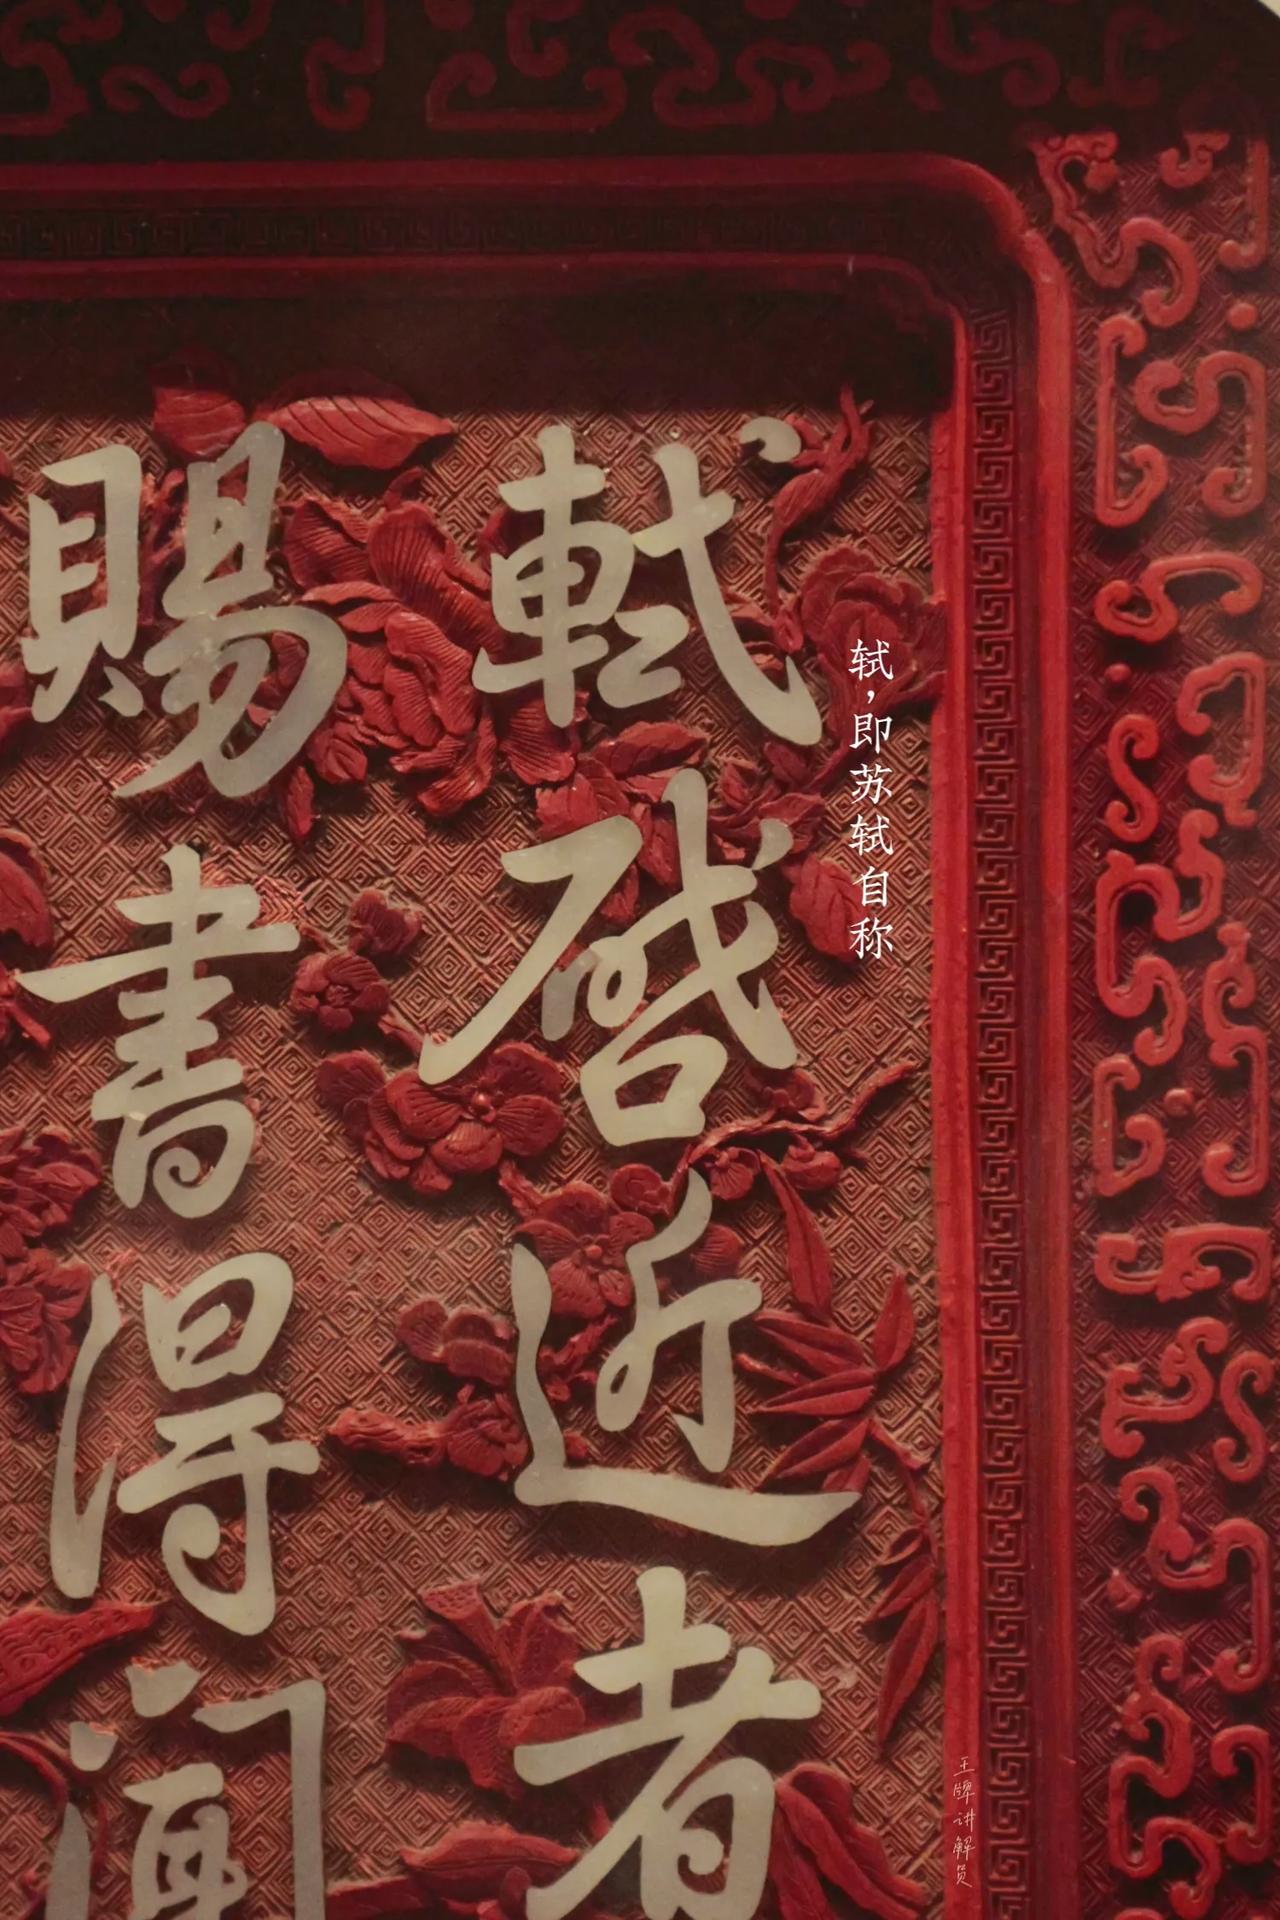 軾啓近者
賜書得聞
轼，即苏轼自称
王牌讲解员